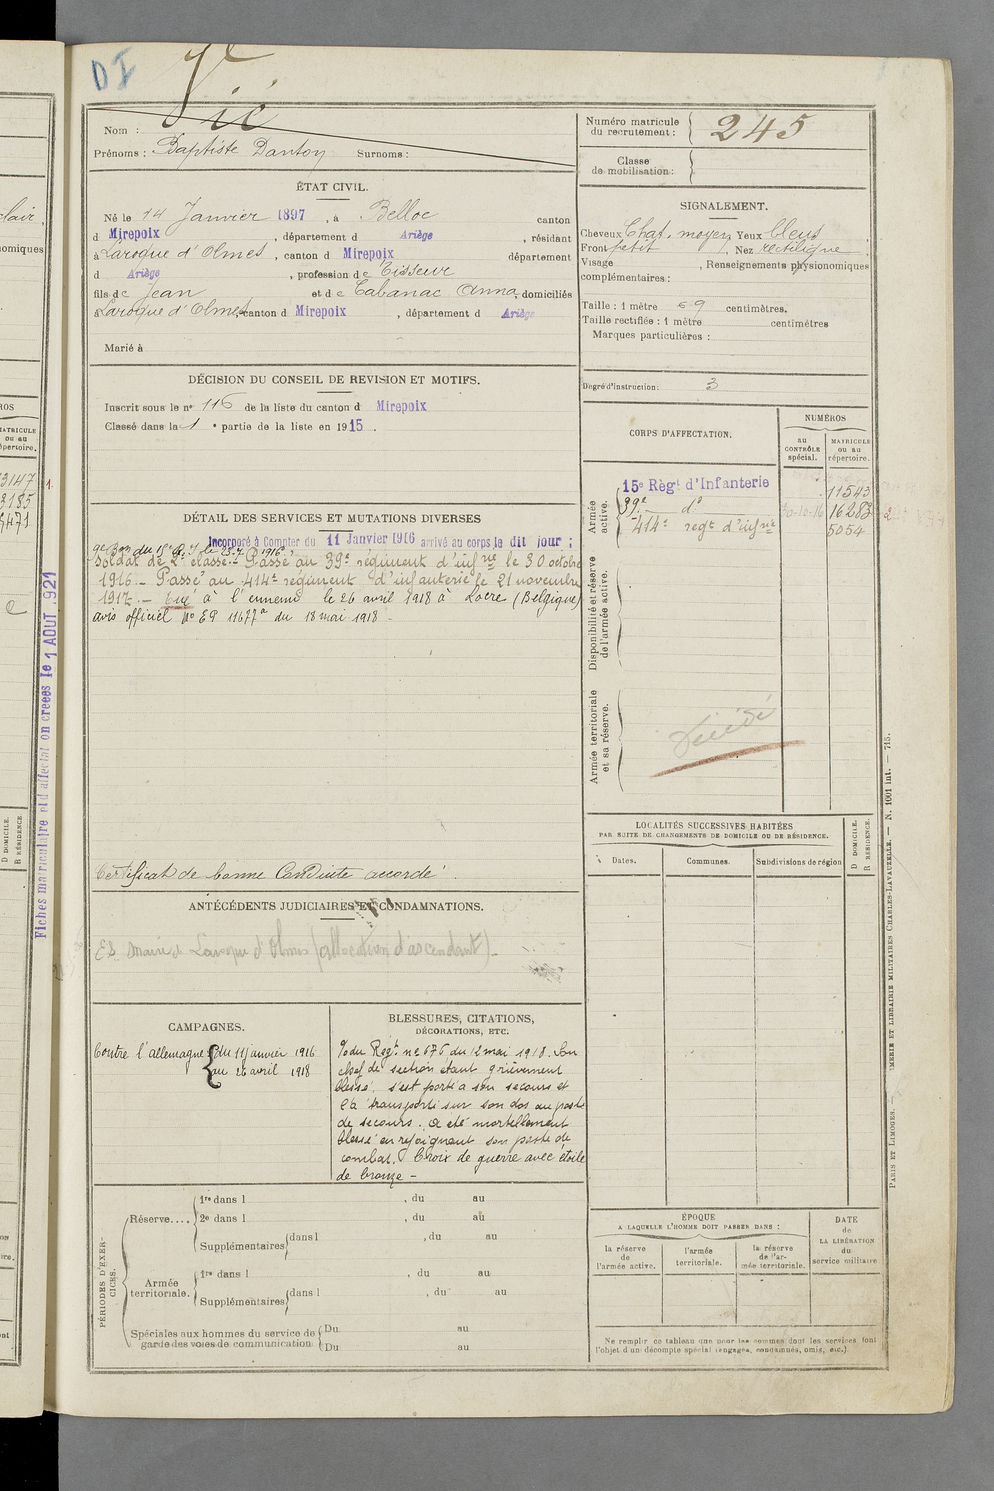 DI
Vic
Nom :
Prénoms : Baptiste Danton Surnoms :
Numéro matricule du recrutement : 245
Classe de mobilisation :
ÉTAT CIVIL.
Né le 14 Janvier 1897, à Belloc canton
d Mirepoix, département d Ariège, résidant
à Laroque d'Olmes, canton d Mirepoix département
d Ariège, profession de Tisseur
fils de Jean et de Cabanac Anna, domiciliés
à Laroque d'Olmes canton d Mirepoix, département d Ariège
Marié à
SIGNALEMENT.
Cheveux Chat. moyen Yeux bleus
Front petit, Nez rectiligne
Visage , Renseignements physionomiques
complémentaires :
Taille : 1 mètre 69 centimètres.
Taille rectifiée : 1 mètre centimètres
Marques particulières :
Degré d'instruction : 3
DÉCISION DU CONSEIL DE REVISION ET MOTIFS.
Inscrit sous le n° 116 de la liste du canton d Mirepoix
Classé dans la 1e partie de la liste en 1915.
CORPS D'AFFECTATION.
NUMÉROS
au CONTRÔLE spécial.
MATRICULE ou au répertoire.
Armée active.
15e Régt d'Infanterie 11543
39e do 30-10-16 16283
414e regt d'infrie 5054
Disponibilité et réserve de l'armée active.
Armée territoriale et sa réserve.
Décédé
DÉTAIL DES SERVICES ET MUTATIONS DIVERSES
Incorporé à Compter du 11 Janvier 1916 arrivé au corps le dit jour ;
9e Bon du 18e R.I. le 23.7.1916
Soldat de 2e classe. - Passé au 39e régiment d'infrie le 30 octobre
1916. - Passé au 414e régiment d'infanterie le 21 novembre
1917. - tué à l'ennemi le 26 avril 1918 à Locre (Belgique)
avis officiel No EP 11677a du 18 mai 1918 -
Certificat de bonne Conduite accordé
ANTÉCÉDENTS JUDICIAIRES ET CONDAMNATIONS.
Mairie de Laroque d'Olmes (allocation d'ascendant) -
LOCALITÉS SUCCESSIVES HABITÉES
PAR SUITE DE CHANGEMENTS DE DOMICILE OU DE RÉSIDENCE.
Dates. Communes. Subdivisions de région
D DOMICILE.
R RÉSIDENCE.
CAMPAGNES.
Contre l'allemagne { du 11 janvier 1916
au 26 avril 1918
BLESSURES, CITATIONS,
DÉCORATIONS, ETC.
% du Regt. ne 676 du 12 mai 1918. Son
chef de section étant grièvement
blessé, s'est porté a son secours et
l'a transporté sur son dos au poste
de secours. a été mortellement
blessé en rejoignant son poste de
combat. Croix de guerre avec étoile
de bronze -
PÉRIODES D'EXERCICES.
Réserve....
1re dans l , du au
2e dans l , du au
Supplémentaires dans l , du au
Armée territoriale.
1re dans l , du au
Supplémentaires dans l , du au
Spéciales aux hommes du service de garde des voies de communication
Du au
Du au
ÉPOQUE
A LAQUELLE L'HOMME DOIT PASSER DANS :
la réserve de l'armée active.
l'armée territoriale.
la réserve de l'armée territoriale.
DATE de LA LIBÉRATION du service militaire
Ne remplir ce tableau que pour les hommes dont les services font
l'objet d'un décompte spécial (engagés, condamnés, omis, etc.)
3147
3185
5471
1 AOUT 1921